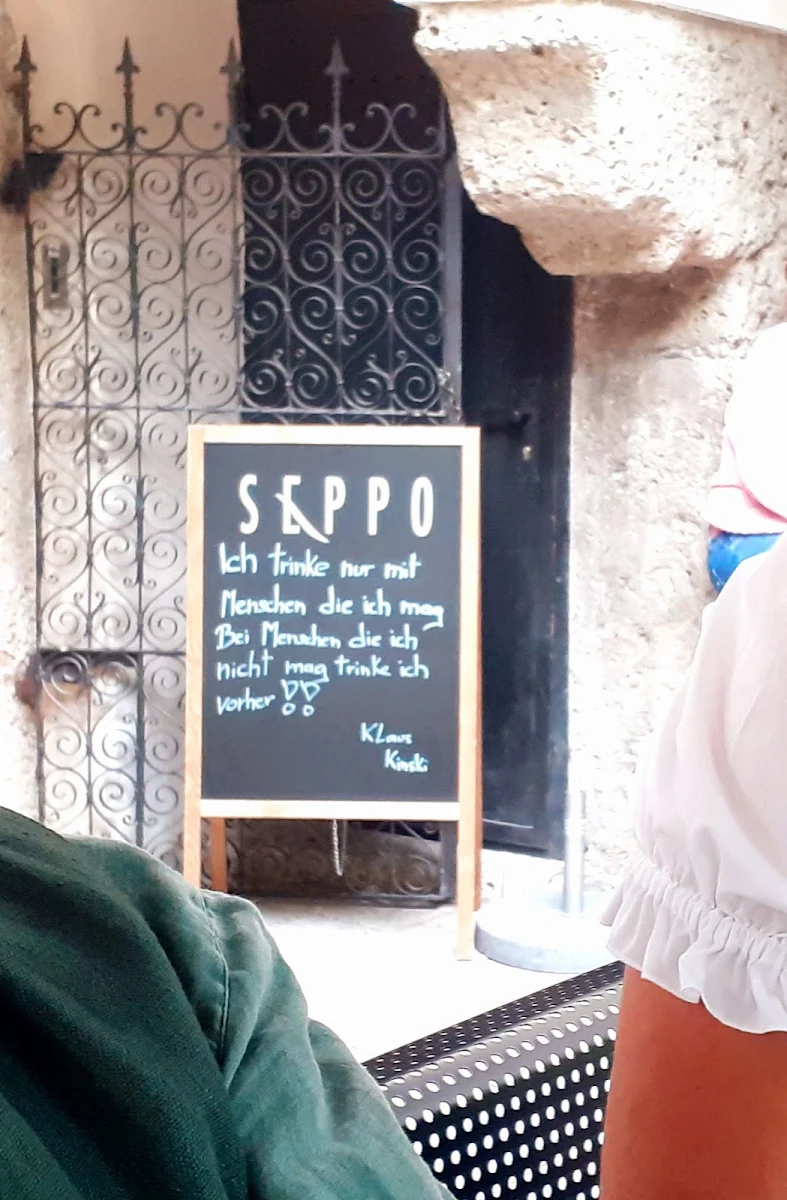 SEPPO
Ich trinke nur mit
Menschen die ich mag
Bei Menschen die ich
nicht mag trinke ich
vorher !!
Klaus
Kinski